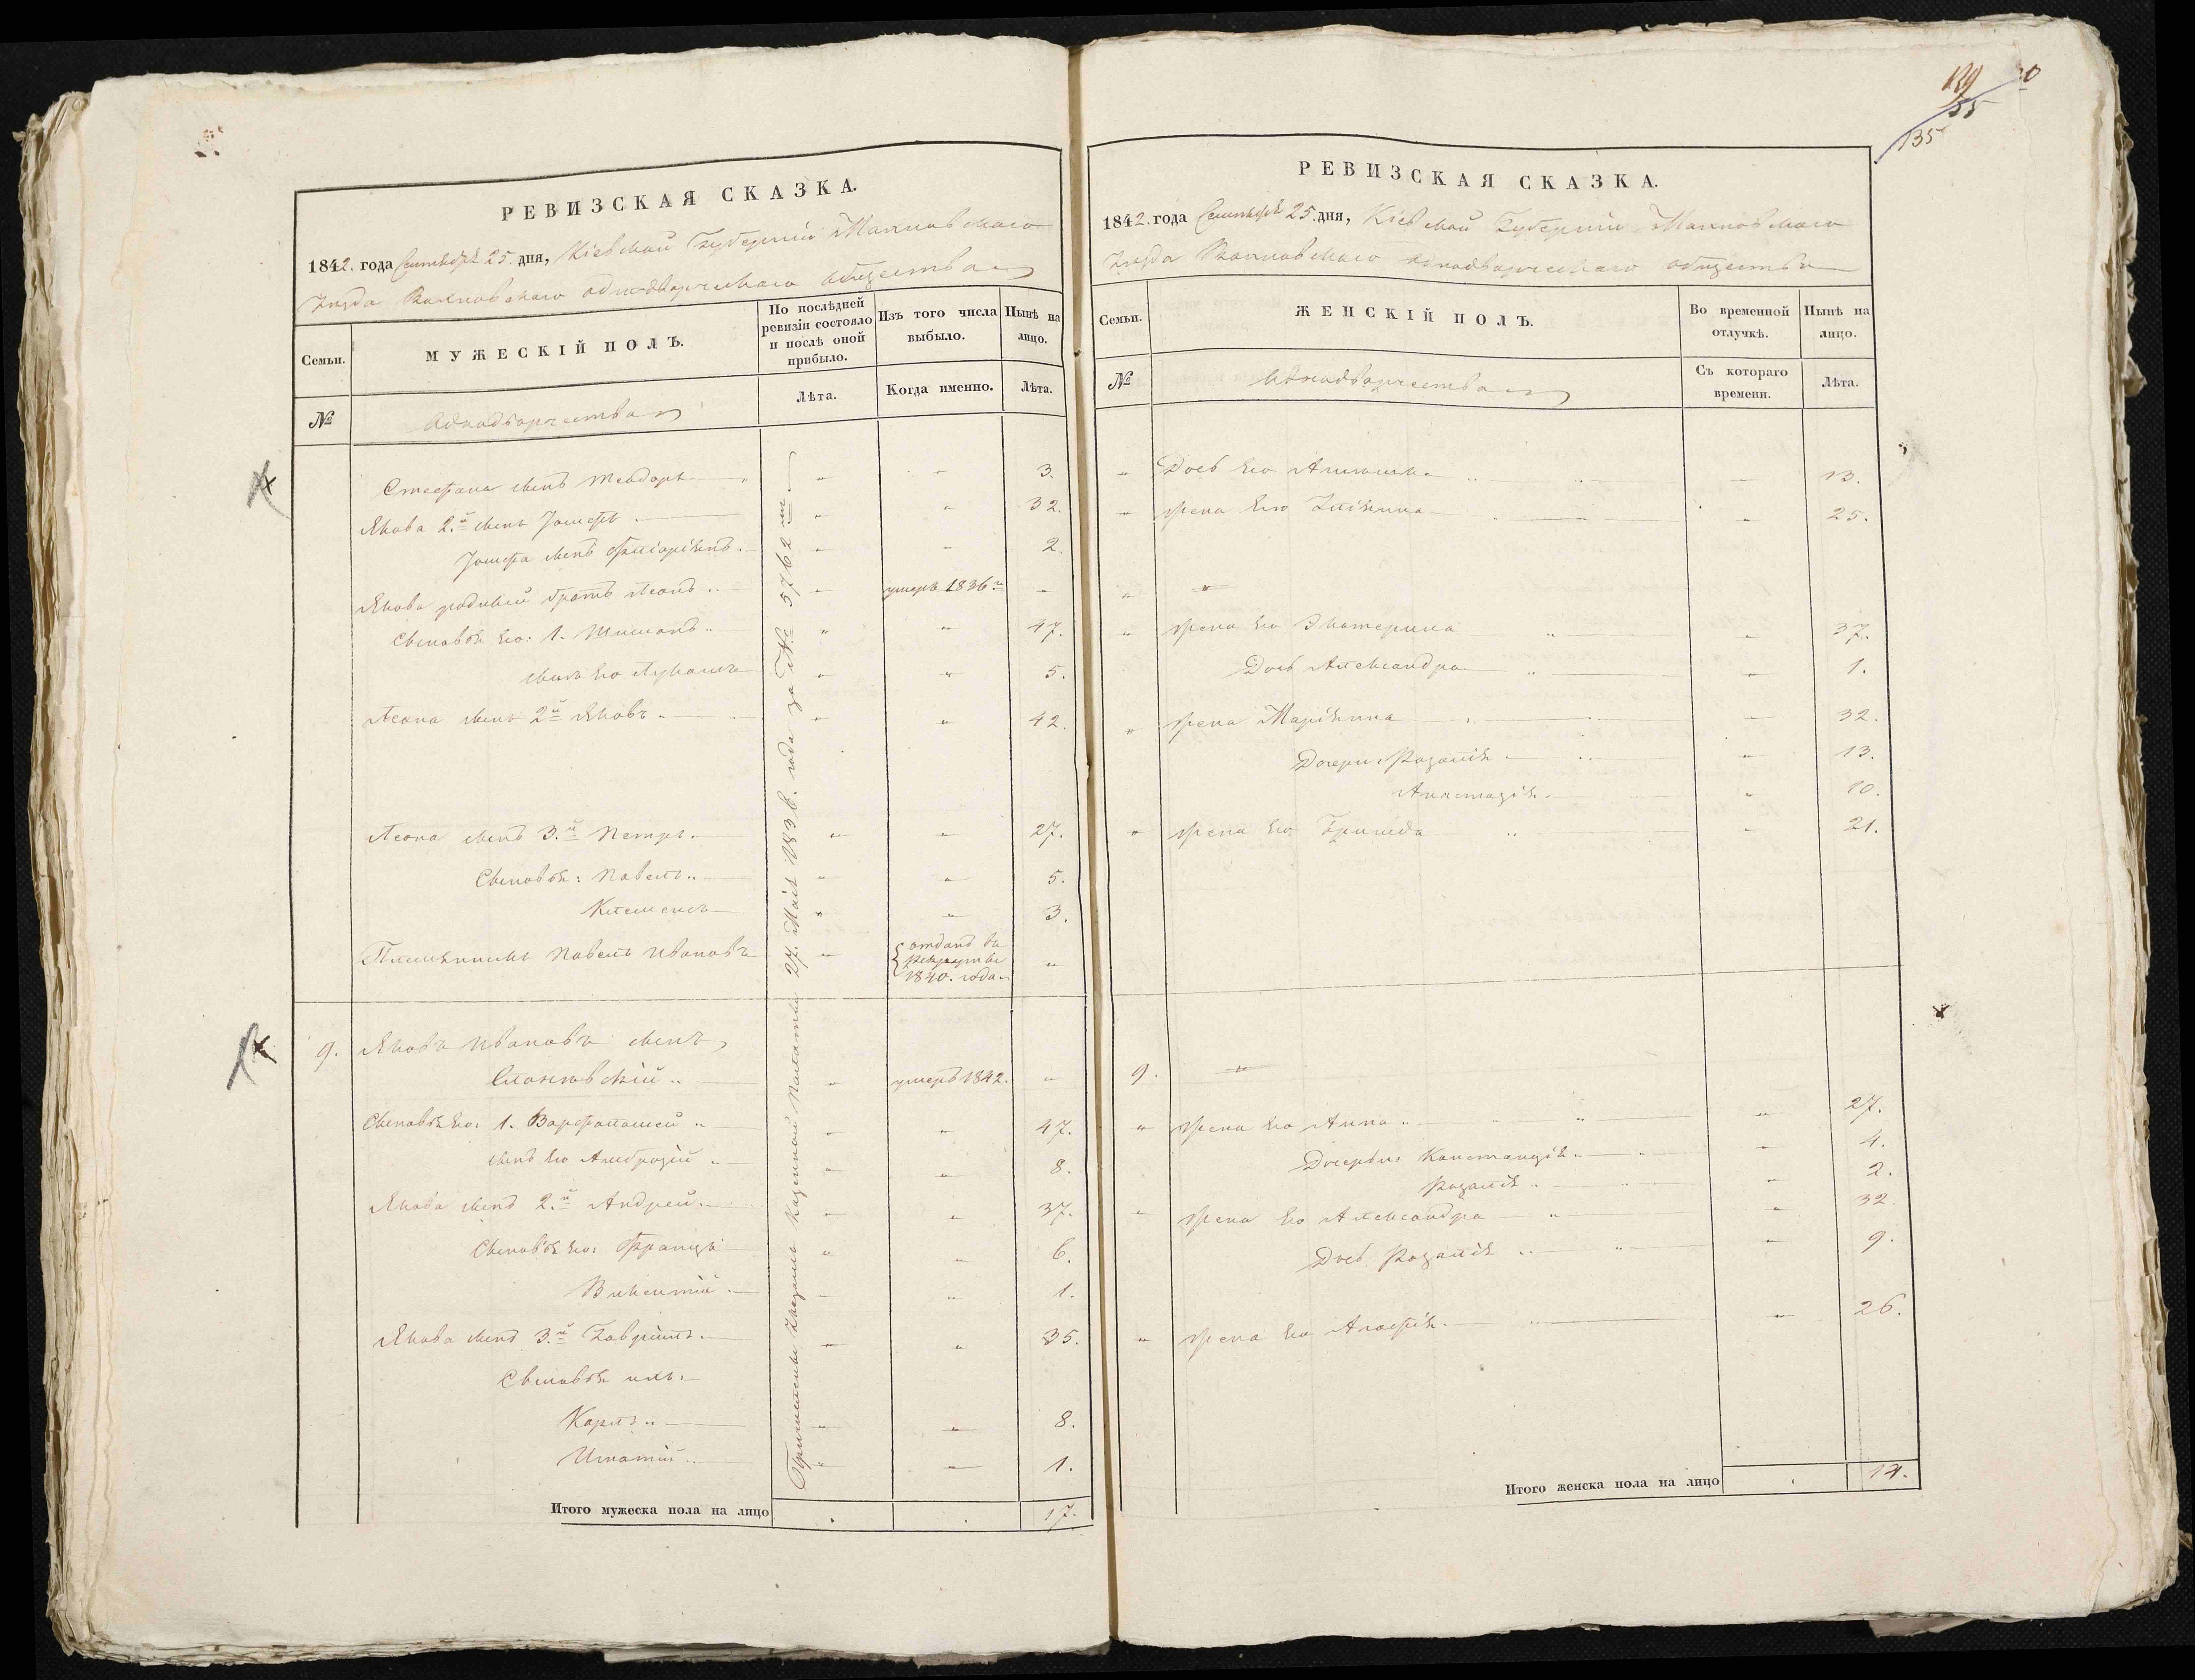 РЕВИЗСКАЯ СКАЗКА.
1842. года Сентября 25. дня, Кіевской Губерніи Махновскаго
Уѣзда Вахновскаго однодворческаго общества
Семьи.
МУЖЕСКІЙ ПОЛЪ.
По послѣдней ревизіи состояло и послѣ оной прибыло.
Изъ того числа выбыло.
Нынѣ на лицо.
№
Однодворчества
Лѣта.
Когда именно.
Лѣта.
Стефана сынъ Теодоръ " " 3.
Якова 2.й сынъ Іосифъ " " 32.
Іосифа сынъ Флоріянъ " " 2.
Якова родный братъ Леонъ " умеръ 1836 "
Сыновья его: 1. Шимонъ " " 47.
сынъ его Лукашъ " " 5.
Леона сынъ 2й Яковъ " " 42.
Леона сынъ 3.й Петръ " " 27.
Сыновья: Павелъ " " 5.
Клеменсъ " " 3.
Племянникъ Павелъ Ивановъ " отданъ въ
рекруты
1840. года "
9. Яковъ Ивановъ сынъ
" умеръ 1842. "
Сыновья его: 1. Варфоломей " " 47.
сынъ его Амброзій " " 8.
Якова сынъ 2.й Андрей " " 37.
Сыновья его: Францъ " " 6.
Викентій " " 1.
Якова сынъ 3.й Гаврiилъ " " 35.
Сыновья ихъ:
Карлъ " " 8.
Игнатій " " 1.
Причислены Указомъ Казенной Палаты 27. Мая 1838. года за № 5762 м
Итого мужеска пола на лицо . . 17.
139
55
135
РЕВИЗСКАЯ СКАЗКА.
1842. года Сентября 25. дня, Кіевской Губерніи Махновскаго
Уѣзда Вахновскаго однодворческаго общества
Семьи.
ЖЕНСКІЙ ПОЛЪ.
Во временной отлучкѣ.
Нынѣ на лицо.
№
Однодворчества
Съ котораго времени.
Лѣта.
" Дочь его " 13.
" жена его " 25.
" "
" жена его Екатерина " 37.
Дочь Александра " 1.
" жена Маріянна " 32.
Дочери: Розалія " 13.
Анастазія " 10.
" жена его Бригида " 21.
9. "
" жена его Анна " 27.
Дочери: Констанція " 4.
Розалія " 2.
" жена его Александра " 32.
Дочь Розалія " 9.
" жена его Агафія " 26.
Итого женска пола на лицо 14.